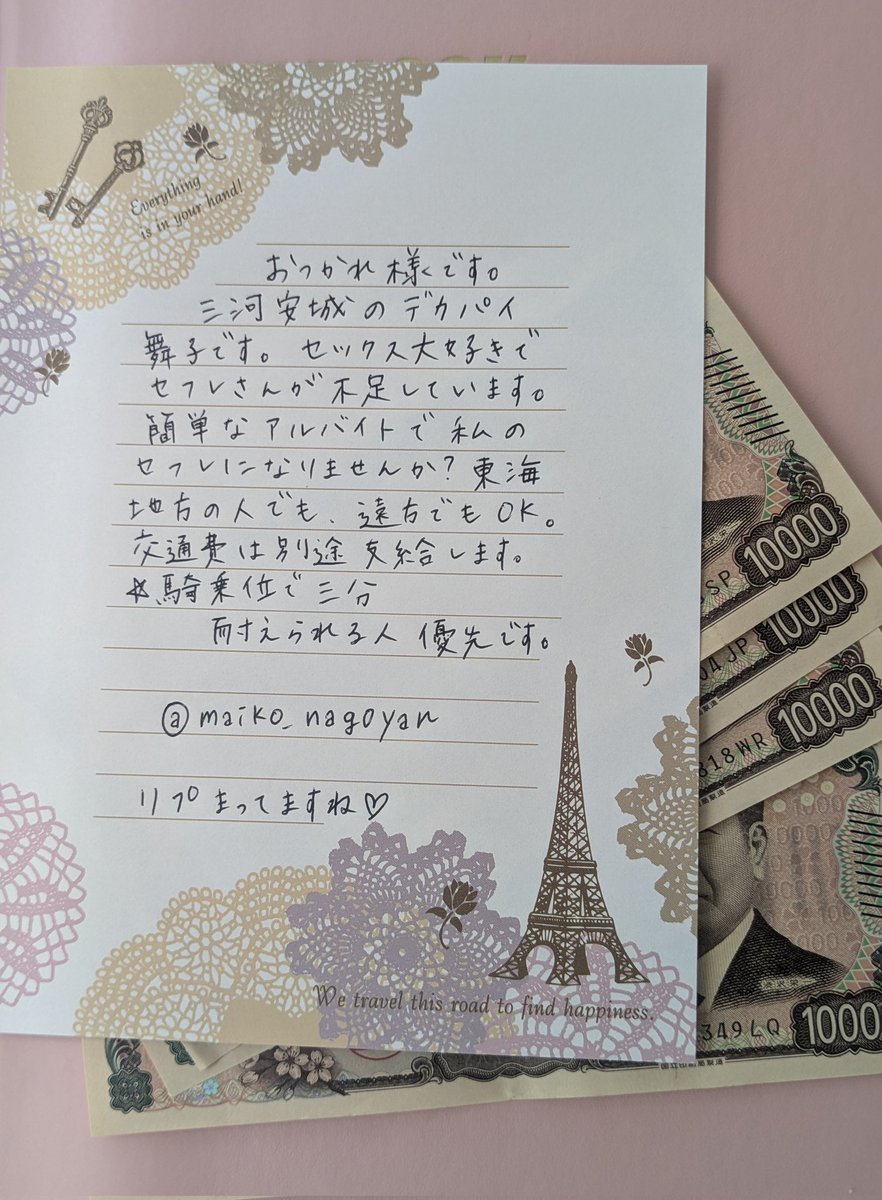 Everything
is in your hand!
おつかれ様です。
三河安城のデカパイ
舞子です。セックス大好きで
セフレさんが不足しています。
簡単なアルバイトで私の
セフレになりませんか?東海
地方の人でも、遠方でもOK。
交通費は別途支給します。
☆騎乗位で三分
耐えられる人優先です。
@maiko_nagoyan
リプまってますね♡
We travel this road to find happiness.
10000
SP
10000
04JP
10000
818WR
1000
349LQ
国立印刷局製造